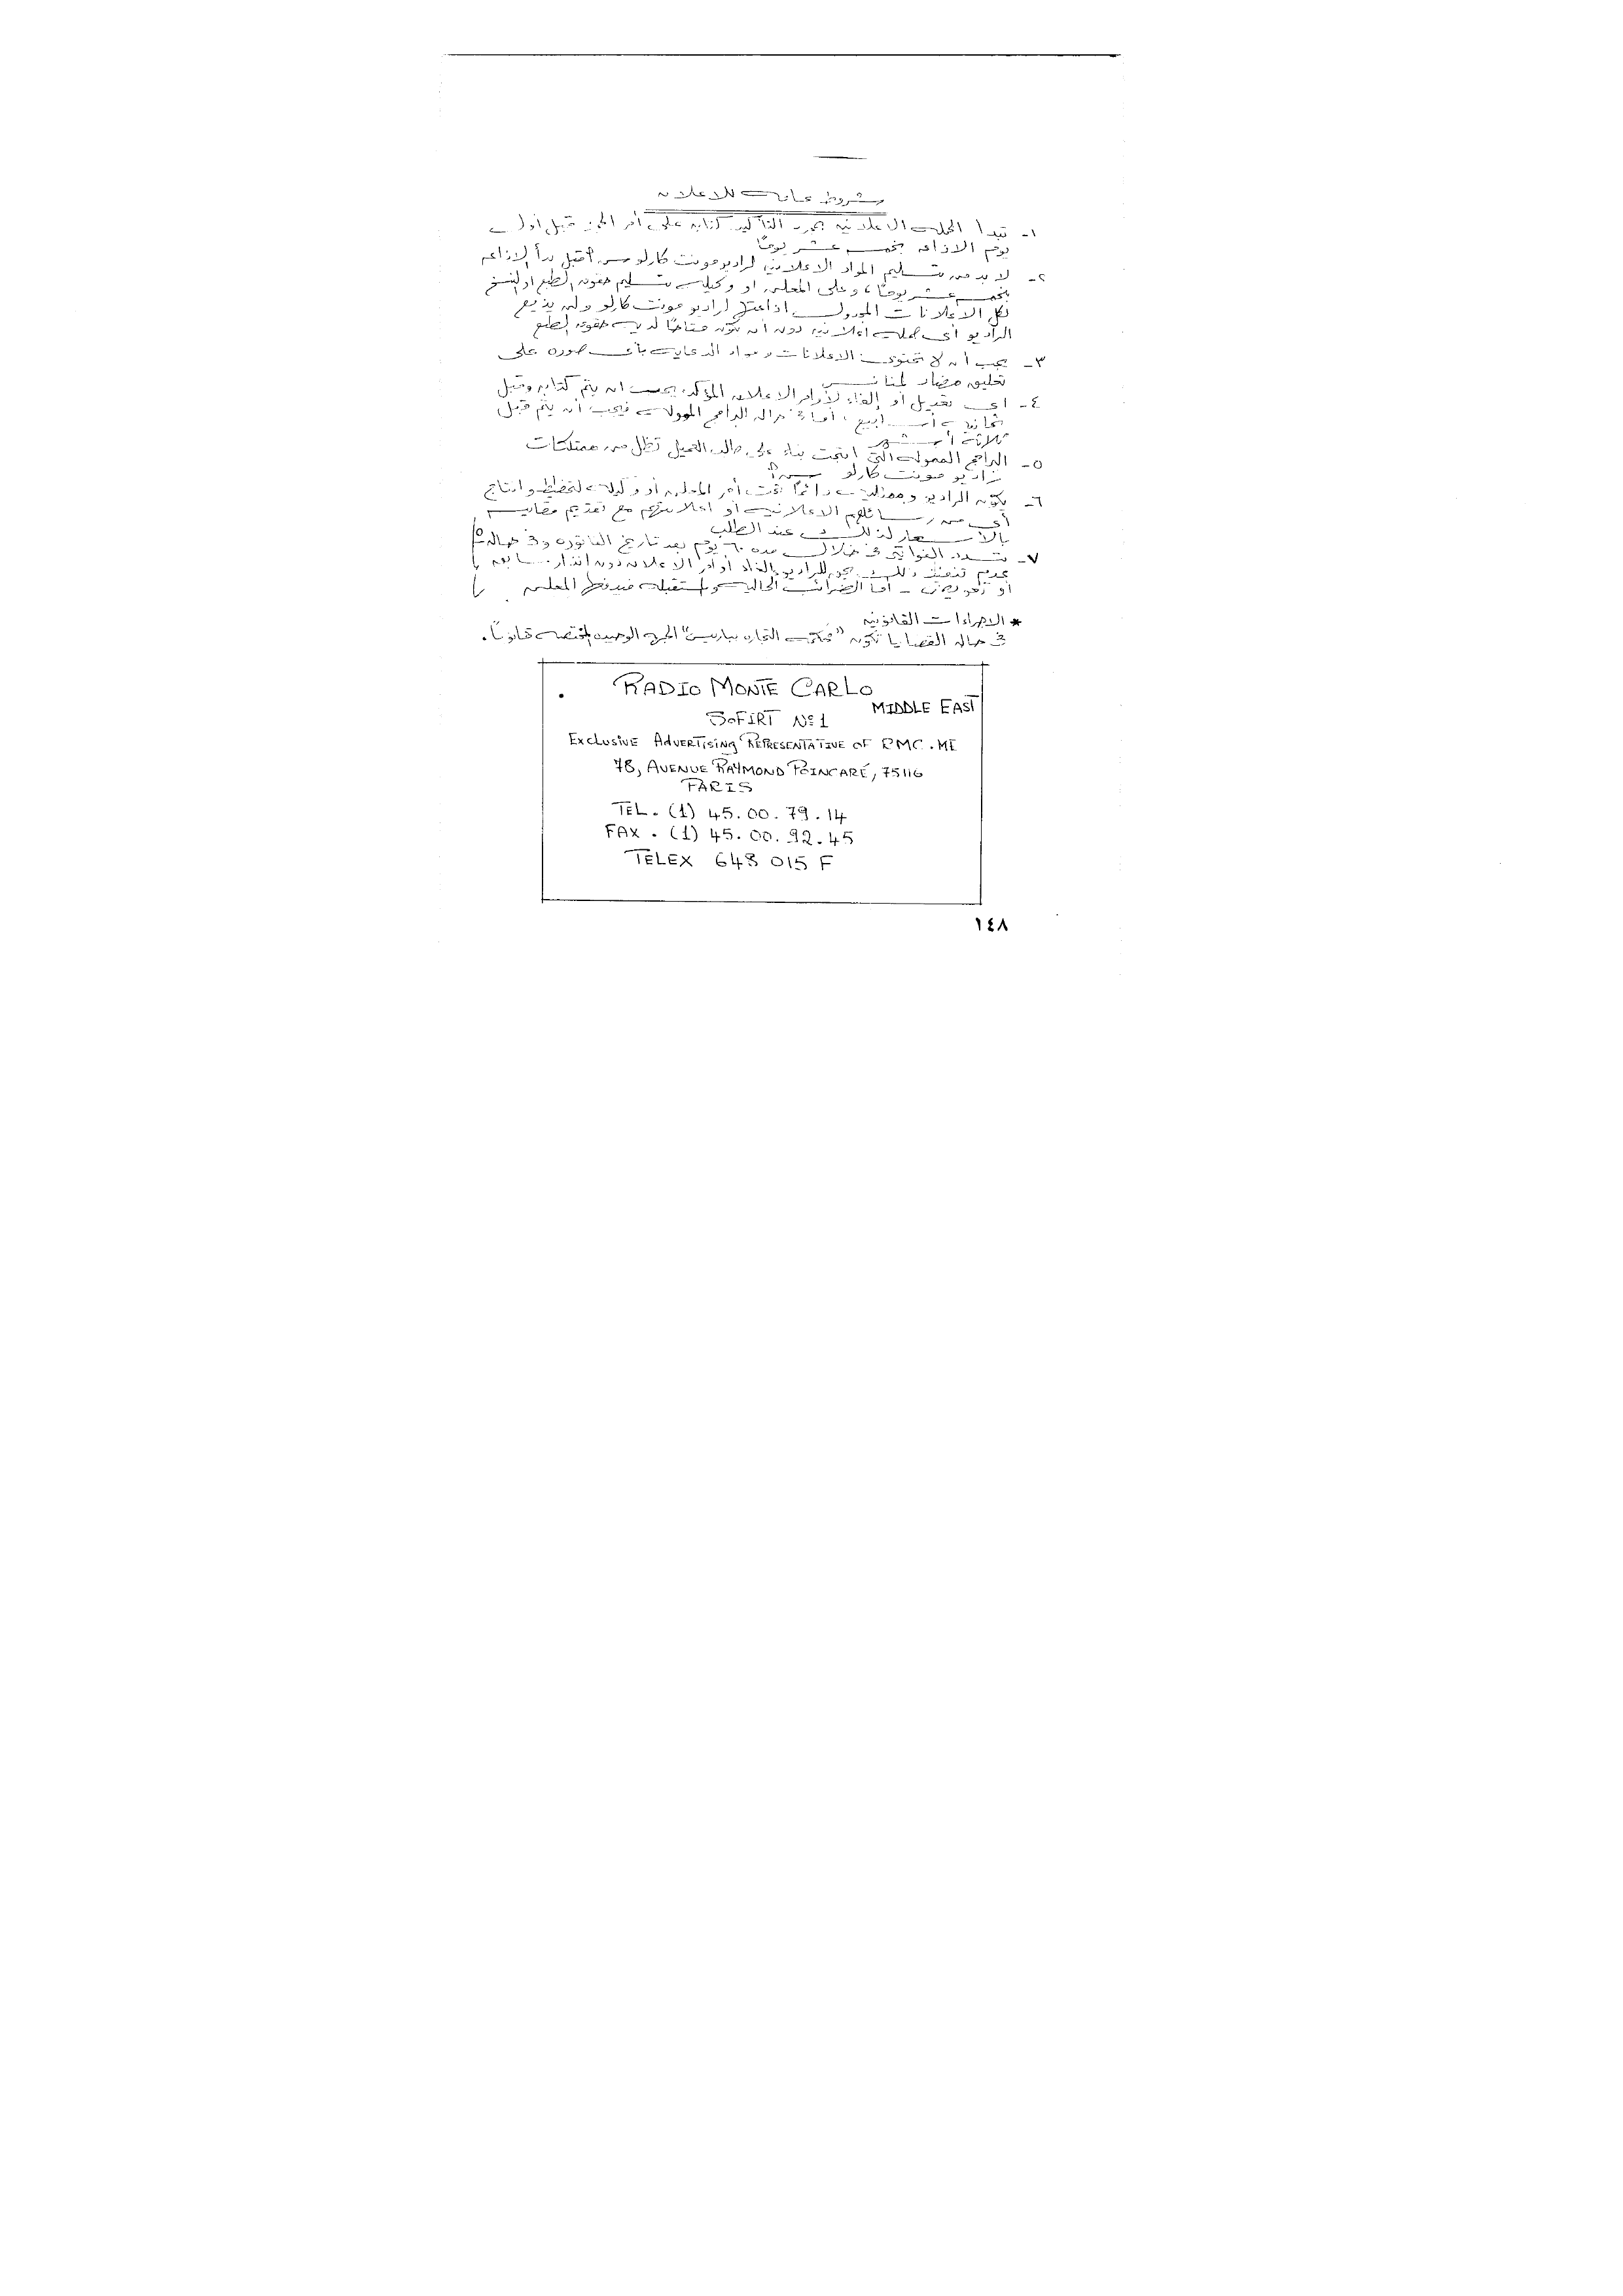 شروط عامة للاعلان
١- تبدأ الحملة الاعلانية بمجرد التأكيد كتابة على أمر الحجز قبل أول
يوم الاذاعه بخمسة عشر يوماً
٢- لا بد من تسليم المواد الاعلانية لراديو مونت كارلو قبل بدأ الاذاعه
بخمسة عشر يوماً، وعلى المعلن او وكيله تسليم حقوق الطبع او النسخ
لكل الاعلانات اذاعتها لراديو مونت كارلو ولن يذيع
الراديو أى حملة اعلانية دون أن تكون لديه حقوق الطبع
٣- يجب أن لا تحتوى الاعلانات ومواد الدعاية بأى صورة على
تعليق مضاد لمنافس
٤- اى تعديل أو إلغاء لأوامر الاعلان المؤكد يجب ان يتم كتابه وقبل
ثمانية أسابيع، أما فى حالة البرامج الممولة فيجب أن يتم قبل
ثلاثة أشهر
٥- البرامج الممولة التى انتجت بناء على طلب العميل تظل من ممتلكات
راديو مونت كارلو
٦- يكون الراديو وممثليه دائماً تحت أمر المعلن أو وكيله لتخطيط وانتاج
أى من رسائلهم الاعلانية او اعلاناتهم مع تقديم
بالأسعار لذلك عند الطلب
٧- تسدد الفواتير فى خلال مده ٦٠ يوم بعد تاريخ الفاتوره وفى حاله
عدم تنفيذ ذلك يحق للراديو إلغاء أوامر الاعلان دون انذار سابق
او تعويض - أما الضرائب الحالية والمستقبلة فيدفعها المعلن
* الاجراءات القانونيه
فى حاله القضايا تكون "محكمة التجاره بباريس" الجهه الوحيده المختصه قانوناً.
RADIO MONTE CARLO
MIDDLE EAST
SOFIRT Nº1
EXCLUSIVE ADVERTISING REPRESENTATIVE OF RMC.ME
78, AVENUE RAYMOND POINCARÉ, 75116
PARIS
TEL. (1) 45.00.79.14
FAX. (1) 45.00.92.45
TELEX 648 015 F
١٤٨